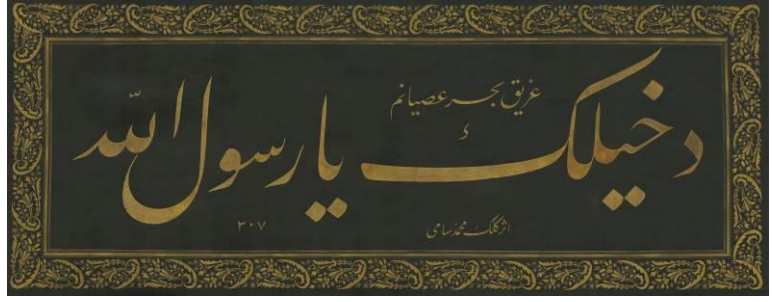 غریق بحر عصیانم
دخیلك یا رسول الله
اثر كلك محمد سامی
٣٠٧